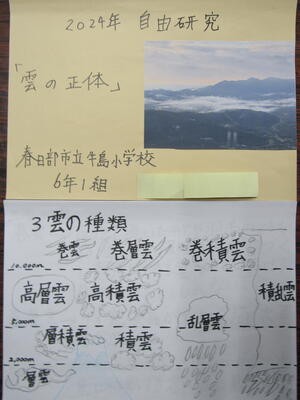 2024年 自由研究
「雲の正体」
春日部市立牛島小学校
6年1組
3 雲の種類
巻雲 巻層雲 巻積雲
10,000m
高層雲 高積雲 積乱雲
5,000m
乱層雲
層積雲 積雲
2,000m
層雲